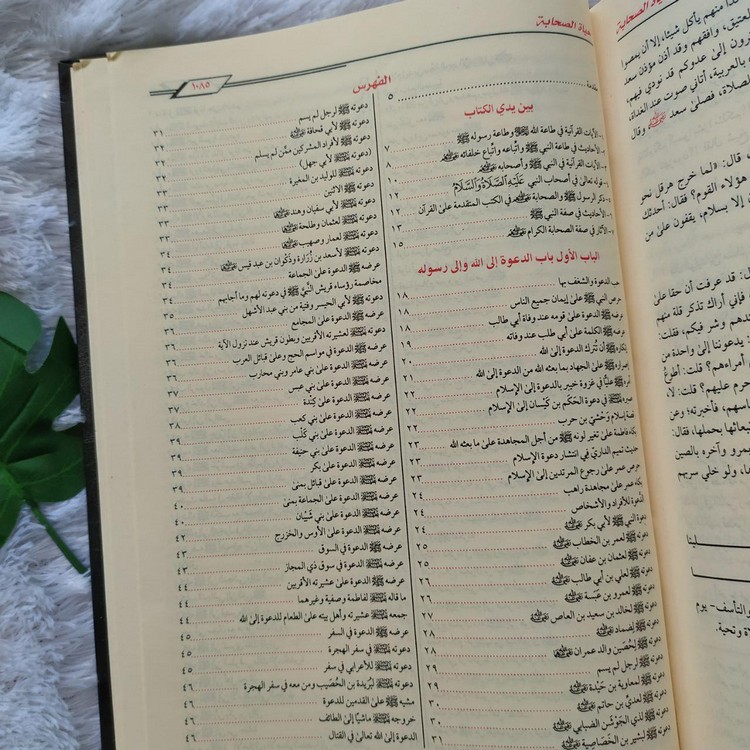 حياة الصحابة
الفهرس
١٠٨٥
مقدمة ٥
بين يدي الكتاب
الآيات القرآنية في طاعة الله ﷺ وطاعة رسوله ﷺ ٧
الأحاديث في طاعة النبي ﷺ واتباعه واتباع خلفائه ٨
الآيات القرآنية في النبي ﷺ وأصحابه ١٠
قوله تعالى في أصحاب النبي عَلَيْهِ ٱلصَّلَاةُ وَٱلسَّلَامُ ١٢
ذكر الرسول ﷺ والصحابة في الكتب المتقدمة على القرآن ١٢
الأحاديث في صفة النبي ﷺ ١٣
الآثار في صفة الصحابة الكرام ١٥
الباب الأول باب الدعوة إلى الله وإلى رسوله
حب الدعوة والشغف بها ١٨
حرص النبي ﷺ على إيمان جميع الناس ١٨
عرضه ﷺ الدعوة على قومه عند وفاة أبي طالب ١٨
عرضه ﷺ الكلمة على أبي طلب عند وفاته ١٩
إنكاره ﷺ أن تُترك الدعوة إلى الله ٢٠
إصراره ﷺ على الجهاد بما بعثه الله من الدعوة إلى الله ٢١
أمره ﷺ عليًّا في غزوة خيبر بالدعوة إلى الإسلام ٢١
صبره ﷺ في دعوة الحَكَم بن كَيْسان إلى الإسلام ٢٢
قصة إسلام وَحْشي بن حرب ٢٢
بكاء فاطمة على تغير لونه ﷺ من أجل المجاهدة على ما بعثه الله ٢٣
حديث تميم الداري في انتشار دعوة الإسلام ٢٣
حرص عمر على رجوع المرتدين إلى الإسلام ٢٣
بكاء عمر على مجاهدة راهب ٢٤
الدعوة للأفراد والأشخاص ٢٤
دعوة النبي ﷺ لأبي بكر ٢٤
دعوته ﷺ لعمر بن الخطاب ٢٥
دعوته ﷺ لعثمان بن عفان ٢٥
دعوته ﷺ لعلي بن أبي طالب ٢٦
دعوته ﷺ لعمرو بن عَبَسة ٢٦
دعوته ﷺ لخالد بن سعيد بن العاص ٢٧
دعوته ﷺ لضِماد ٢٨
دعوته ﷺ لحُصَين والد عمران ٢٨
دعوته ﷺ لرجل لم يسم ٢٩
دعوته ﷺ لمعاوية بن حَيْدة ٢٩
دعوته ﷺ لعدي بن حاتم ٣٠
دعوته ﷺ لذي الجَوْشَن الضبابي ٣٠
دعوته ﷺ لبشير بن الخَصَاصِية ٣١
دعوته ﷺ لرجل لم يسم ٣١
دعوته ﷺ لأبي قحافة ٣٢
دعوته ﷺ لأفراد المشركين ممَّن لم يسلم ٣٢
دعوته ﷺ لأبي جهل) ٣٢
دعوته ﷺ للوليد بن المغيرة ٣٣
دعوته ﷺ الاثنين ٣٣
دعوته ﷺ لأبي سفيان وهند ٣٣
دعوته ﷺ لعثمان وطلحة ٣٣
دعوته ﷺ لعمار وصهيب ٣٤
دعوته ﷺ لأسعد بن زُرَارة وذَكْوان بن عبد قيس ٣٤
عرضه ﷺ الدعوة على الجماعة ٣٤
مخاصمة رؤساء قريش النَّبيَّ ﷺ في دعوته لهم وما أجابهم ٣٤
دعوته ﷺ لأبي الحيسر وفتية من بني عبد الأشهل ٣٥
عرضه ﷺ الدعوة على المجامع ٣٦
دعوته ﷺ لعشيرته الأقربين وبطون قريش عند نزول الآية ٣٦
عرضه ﷺ الدعوة في مواسم الحج وعلى قبائل العرب ٣٦
عرضه ﷺ الدعوة على بني عامر وبني محارب ٣٦
عرضه ﷺ الدعوة على بني عبس ٣٧
عرضه ﷺ الدعوة على كِنْدة ٣٧
عرضه ﷺ الدعوة على بني كعب ٣٨
عرضه ﷺ الدعوة على بني كَلْب ٣٩
عرضه ﷺ الدعوة على بني حنيفة ٣٩
عرضه ﷺ الدعوة على بكر ٣٩
عرضه ﷺ الدعوة على قبائل بمنى ٣٩
عرضه ﷺ الدعوة على الجماعة بمنى ٤٠
عرضه ﷺ الدعوة على بني شَيْبان ٤٠
عرضه ﷺ الدعوة على الأوس والخزرج ٤٢
عرضه ﷺ الدعوة في السوق ٤٣
عرضه ﷺ الدعوة في سوق ذي المجاز ٤٣
عرضه ﷺ الدعوة على عشيرته الأقربين ٤٤
ما قاله ﷺ لفاطمة وصفية وغيرهما ٤٤
جمعه ﷺ عشيرته وأهل بيته على الطعام للدعوة إلى الله ٤٤
عرضه ﷺ الدعوة في السفر ٤٥
دعوته ﷺ في سفر الهجرة ٤٥
دعوته ﷺ للأعرابي في سفر ٤٥
دعوته ﷺ لبُرَيدة بن الحُصَيب ومن معه في سفر الهجرة ٤٦
مشيه ﷺ على القدمين للدعوة ٤٦
خروجه ﷺ ماشيًا إلى الطائف ٤٦
الدعوة إلى الله تعالى في القتال ٤٦